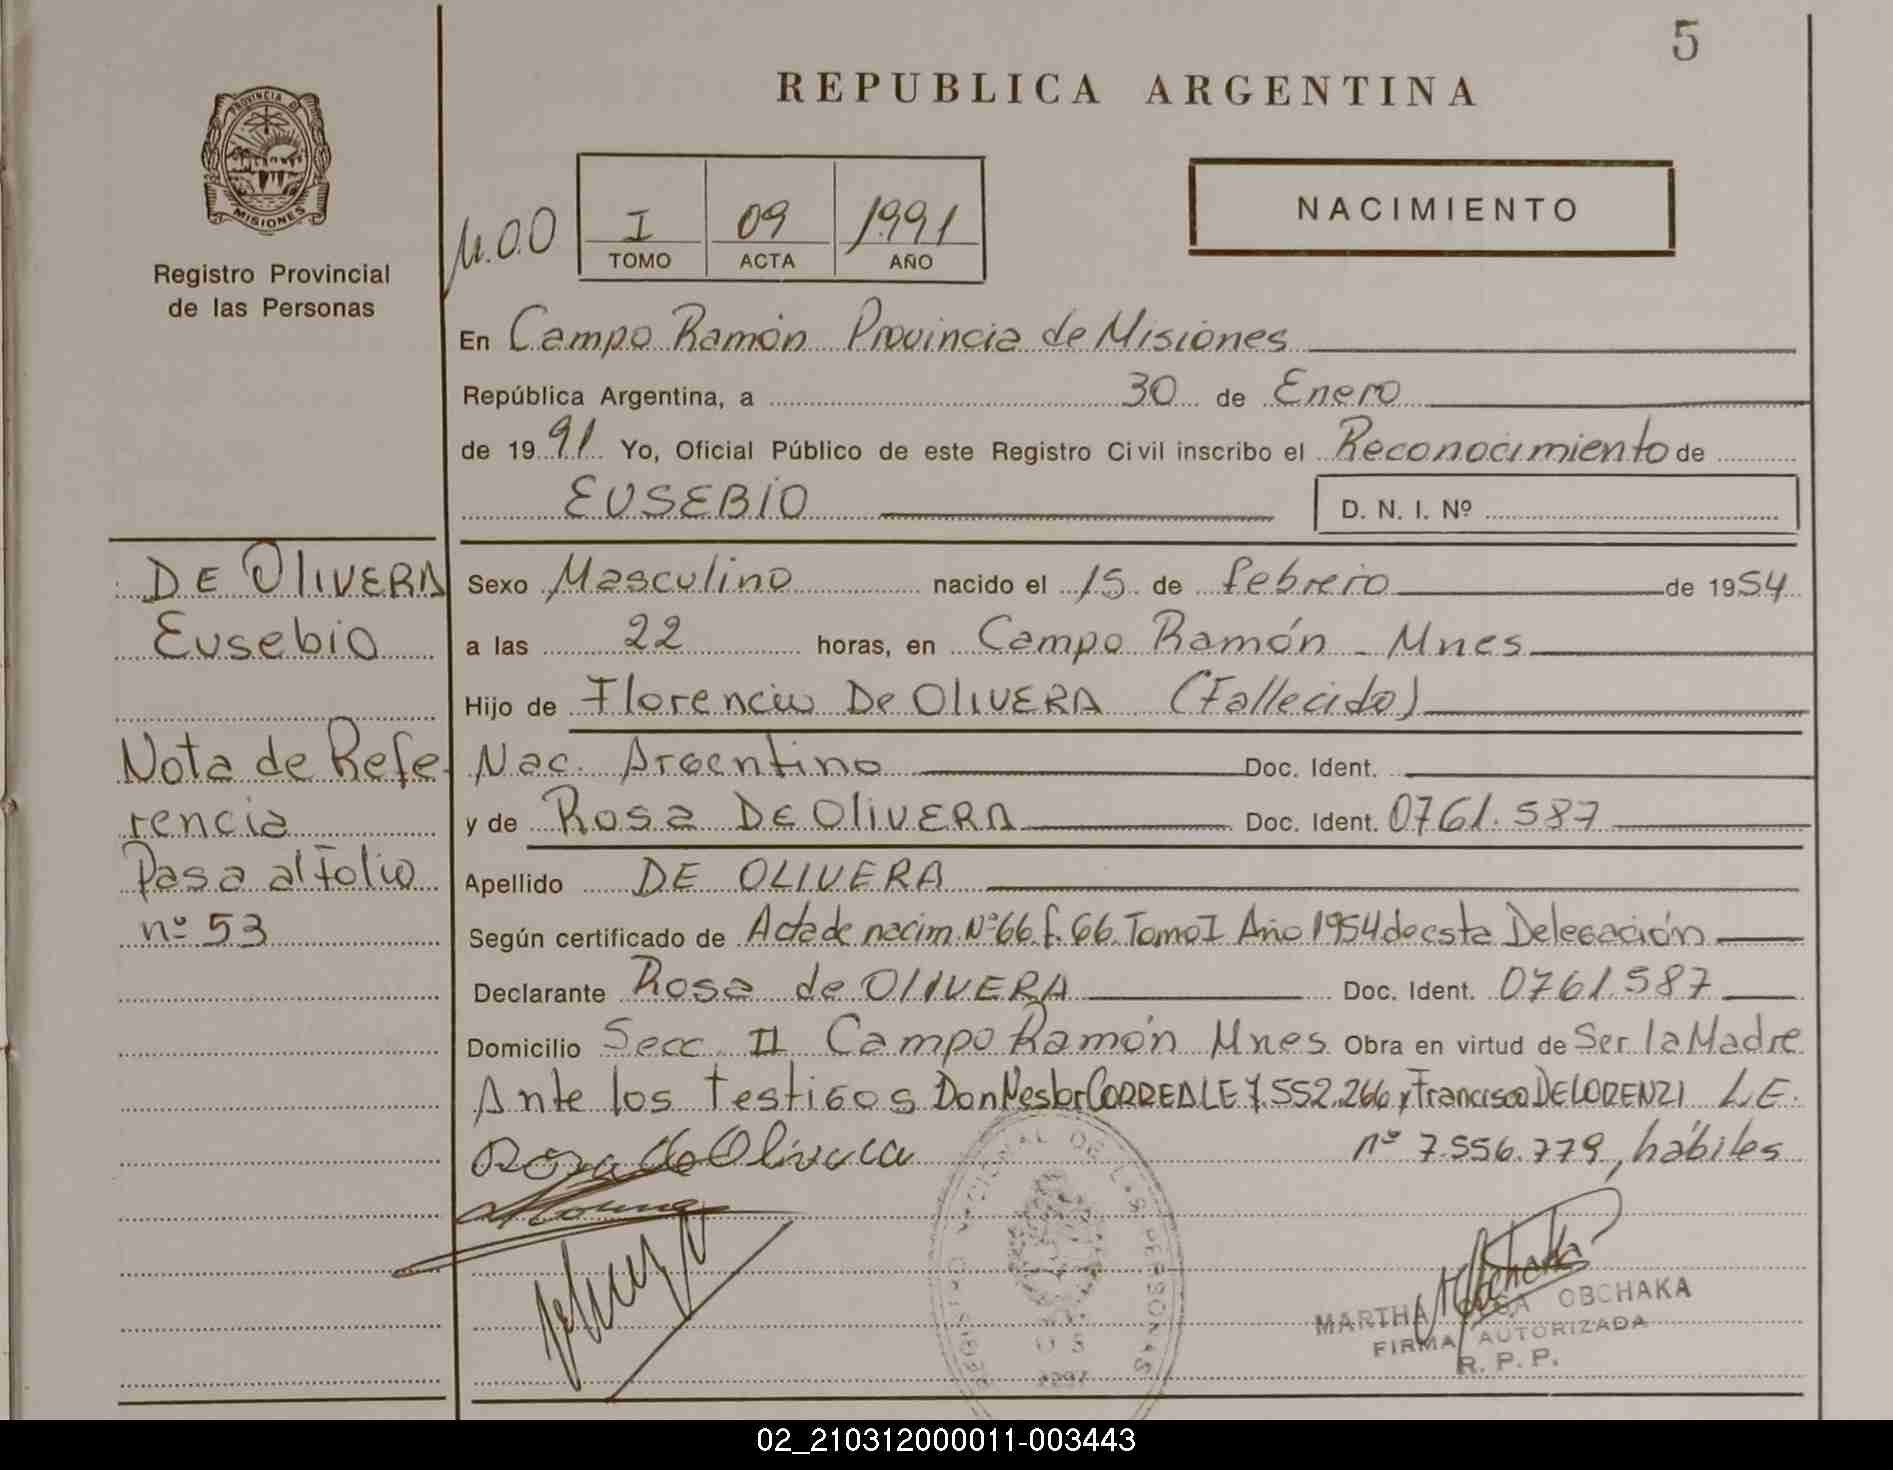 5
REPUBLICA ARGENTINA
PROVINCIA DE
MISIONES
Registro Provincial
de las Personas
I 09 1991
TOMO ACTA AÑO
NACIMIENTO
En Campo Ramón Provincia de Misiones
República Argentina, a 30 de Enero
de 1991 Yo, Oficial Público de este Registro Civil inscribo el Reconocimiento de
EUSEBIO D. N. I. Nº
DE OLIVERA
Eusebio
Nota de Refe-
rencia
Pasa al folio
nº 53
Sexo Masculino nacido el 15 de febrero de 1954
a las 22 horas, en Campo Ramón - Mnes
Hijo de Florencio De OLIVERA (Fallecido)
Nac. Argentino Doc. Ident.
y de Rosa DE OLIVERA Doc. Ident. 0761.587
Apellido DE OLIVERA
Según certificado de Acta de nacim. Nº 66 f. 66 Tomo I Año 1954 de esta Delegación
Declarante Rosa de OLIVERA Doc. Ident. 0761587
Domicilio Secc. II Campo Ramón Mnes Obra en virtud de Ser la Madre
Ante los testigos Don Nestor CORREALE 7.552.266 y Francisco DE LORENZI L.E.
nº 7.556.779, hábiles
Rosa de Olivera
MARTHA OBCHAKA
FIRMA AUTORIZADA
R. P. P.
02_210312000011-003443